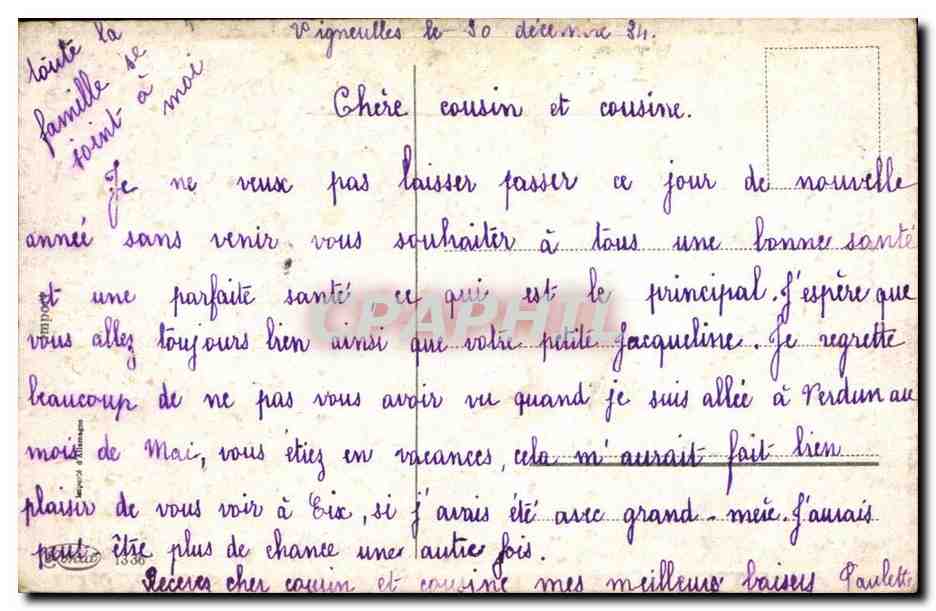 Vigneulles le 30 décembre 34.
toute la
famille se
joint à
moi
Chère cousin et cousine.
Je ne veux pas laisser passer ce jour de nouvelle
année sans venir vous souhaiter à tous une bonne santé
et une parfaite santé ce qui est le principal. J'espère que
vous allez toujours bien ainsi que votre petite Jacqueline. Je regrette
beaucoup de ne pas vous avoir vu quand je suis allée à Verdun au
mois de Mai, vous étiez en vacances, cela m'aurait fait bien
plaisir de vous voir à Eix, si j'avais été avec grand-mère. J'aurais
peut-être plus de chance une autre fois.
Recevez cher cousin et cousine mes meilleurs baisers Paulette
Importé d'Allemagne
1336
CPAPHIL